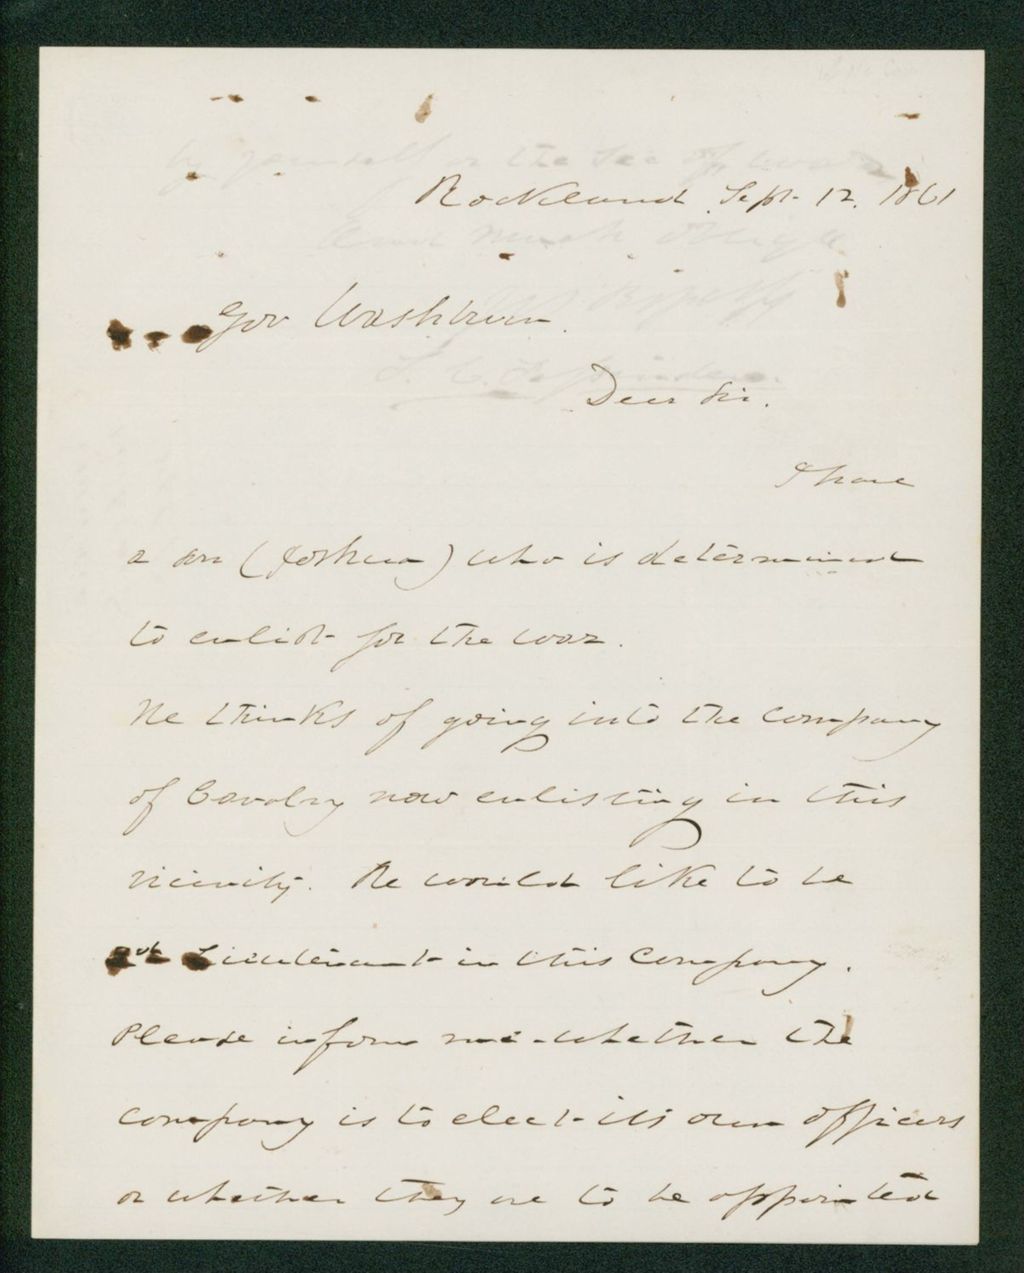 Rockland Sept. 12. 1861
Gov Washburn.
Dear Sir.
I have
a son (Joshua) who is determined
to enlist for the war.
He thinks of going into the company
of Cavalry now enlisting in this
vicinity. He would like to be
Lieutenant in this Company.
Please inform me whether the
company is to elect its own officers
or whether they are to be appointed